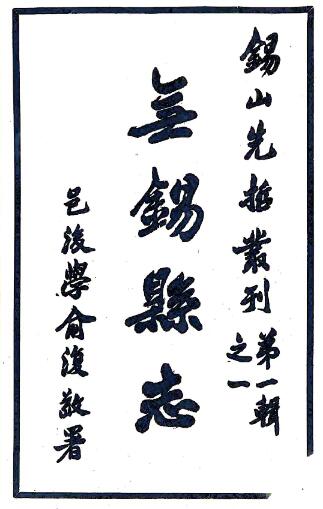 錫山先哲叢刊第一輯
之一
無錫縣志
邑後學俞復敬署